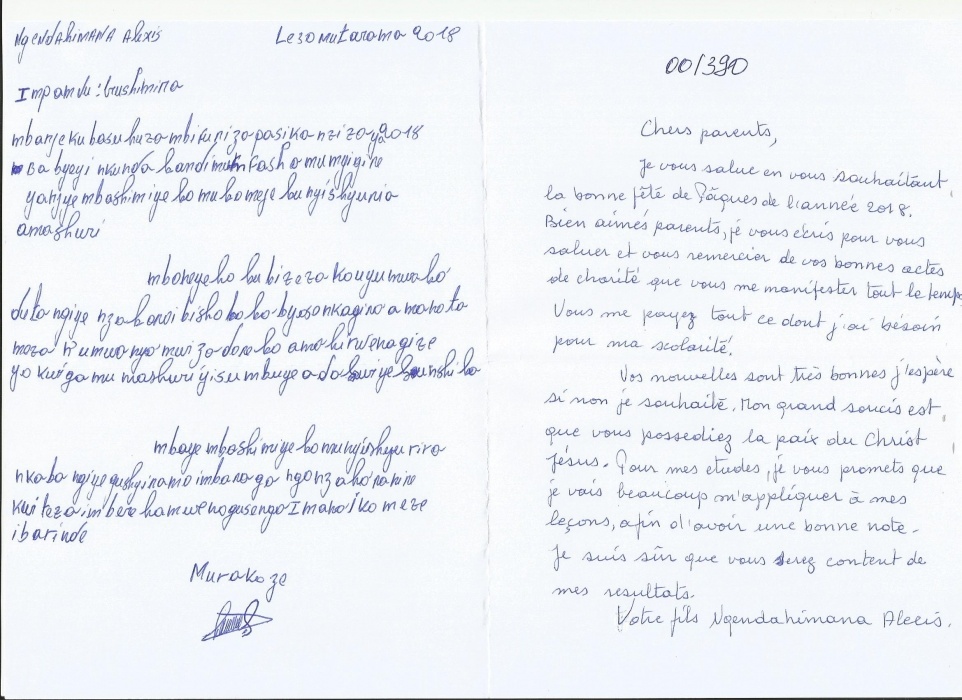 NgENDAHIMANA Alexis
Le 30 mutarama 2018
Impamvu : Gushimira
mbanje kubasuhuza mbifuriza pasika nziza ya 2018
Babyeyi nkunda bandi mumfasha mumyigire
yanjye mbashimiye ko mukomeje kunyishyurira
amashuri
mboneyeho kubizeza ko uyu mwaka
dutangiye nzakora ibishoboka byose nkagira amanota
meza n'umwanya mwiza
yo kwiga mu mashuri yisumbuye
mbaye mbashimiye ko munyishyurira
nkaba ngiye gushyiramo imbaraga
kwiteza imbere hamwe nogusenga Imana ikomeze
ibarinde
Murakoze
00/390
Chers parents,
Je vous salue en vous souhaitant
la bonne fête de Pâques de l'année 2018.
Bien aimés parents, je vous écris pour vous
saluer et vous remercier de vos bonnes actes
de charité que vous me manifester tout le temps
Vous me payez tout ce dont j'ai bésoin
pour ma scolarité.
Vos nouvelles sont très bonnes j'espère
si non je souhaité. Mon grand soucis est
que vous possediez la paix du Christ
Jésus. Pour mes etudes, je vous promets que
je vais beaucoup m'appliquer à mes
leçons, afin d'avoir une bonne note.
Je suis sûr que vous serez content de
mes resultats.
Votre fils Ngendahimana Alexis.